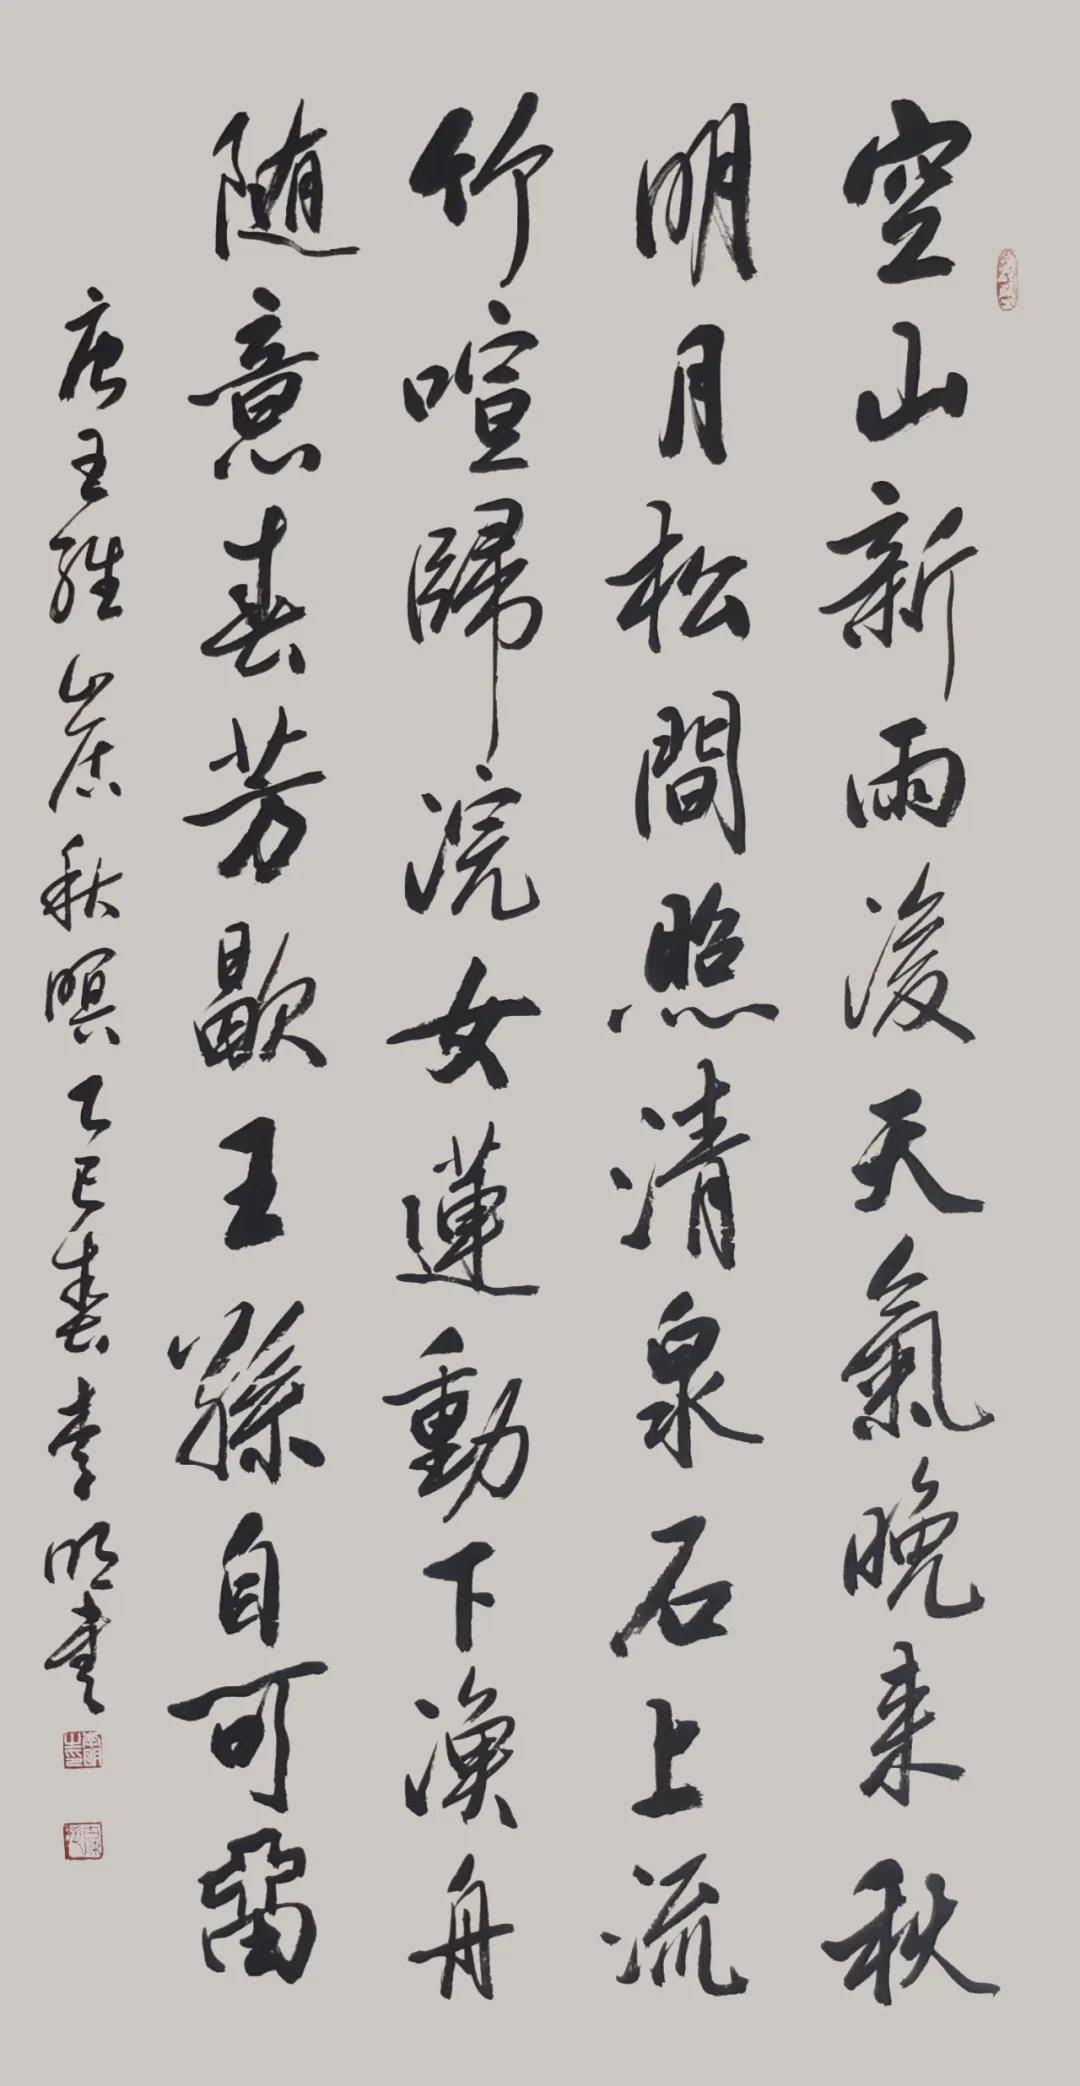 空山新雨後天氣晚来秋
明月松間照清泉石上流
竹喧歸浣女蓮動下漁舟
随意春芳歇王孫自可留
唐王維山居秋暝乙巳春李明書